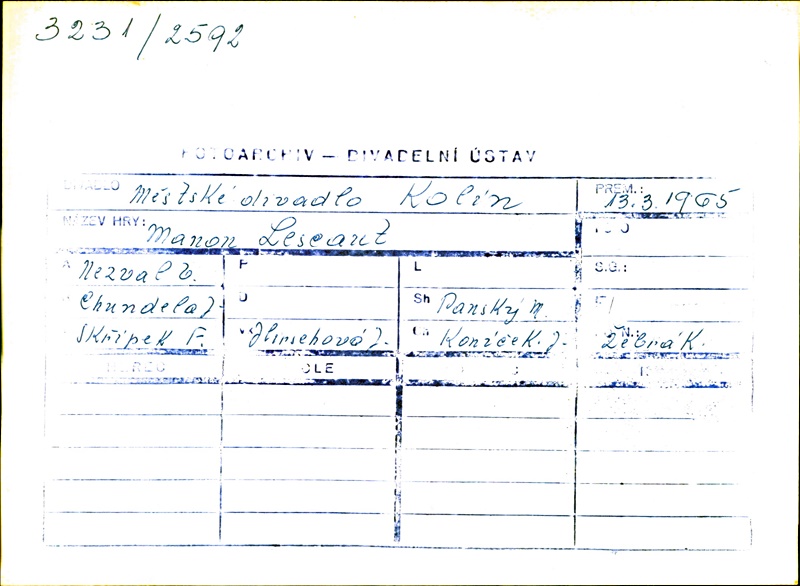 3231/2592
FOTOARCHIV — DIVADELNÍ ÚSTAV
DIVADLO Městské divadlo Kolín PREM.: 13.3.1965
NÁZEV HRY: Manon Lescaut
A Nezval V. P L S.G.:
Chundela J. D Sh Panský M.
Skřípek F. V J. Ch Koníček J. Žebrák.
HEREC ROLE